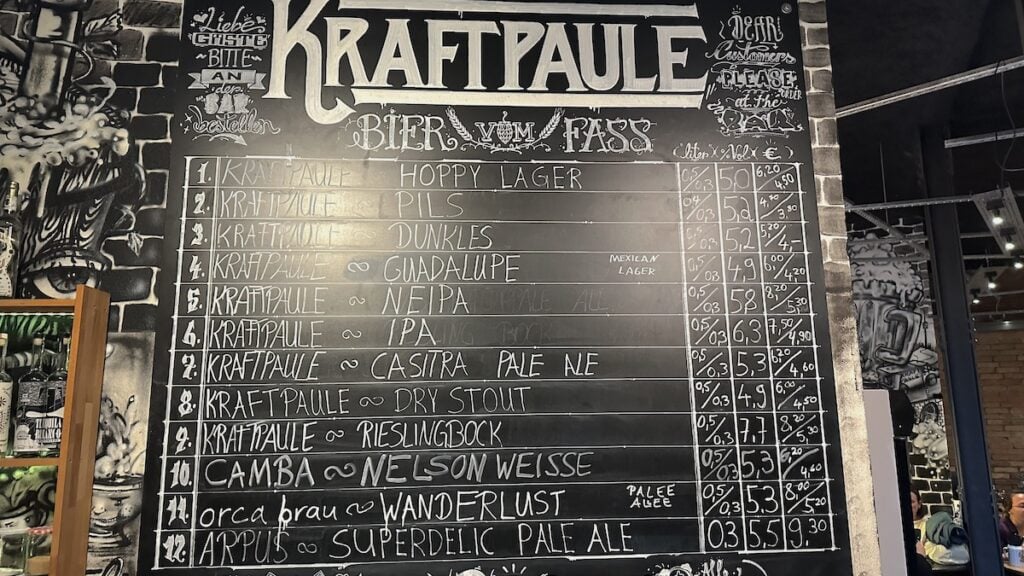 Liebe
GÄSTE
BITTE
AN
der
BAR
bestellen
KRAFTPAULE
DEAR
Customers
PLEASE
at the
BIER VOM FASS
Liter % Vol % €
1. KRAFTPAULE HOPPY LAGER 0,5/0,3 5,0 6,20/4,50
2. KRAFTPAULE ~ PILS 0,4/0,3 5,2 4,90/3,90
3. KRAFTPAULE ~ DUNKLES 0,5/0,3 5,2 4,-
4. KRAFTPAULE ~ GUADALUPE MEXICAN LAGER 0,5/0,3 4,9 6,00/4,20
5. KRAFTPAULE ~ NEIPA 0,5/0,3 5,8 8,20/5,30
6. KRAFTPAULE ~ IPA 0,5/0,3 6,3 7,50/4,90
7. KRAFTPAULE ~ CASITRA PALE ALE 0,5/0,3 5,3 4,60
8. KRAFTPAULE ~ DRY STOUT 0,5/0,3 4,9 6,00/4,50
9. KRAFTPAULE ~ RIESLINGBOCK 0,5/0,3 7,7
10. CAMBA ~ NELSON WEISSE 0,5/0,3 5,3 6,20/4,60
11. orca brau ~ WANDERLUST PALEE ALEE 0,5/0,3 5,3 8,00/5,20
12. ARPUS ~ SUPERDELIC PALE ALE 0,3 5,5 9,30